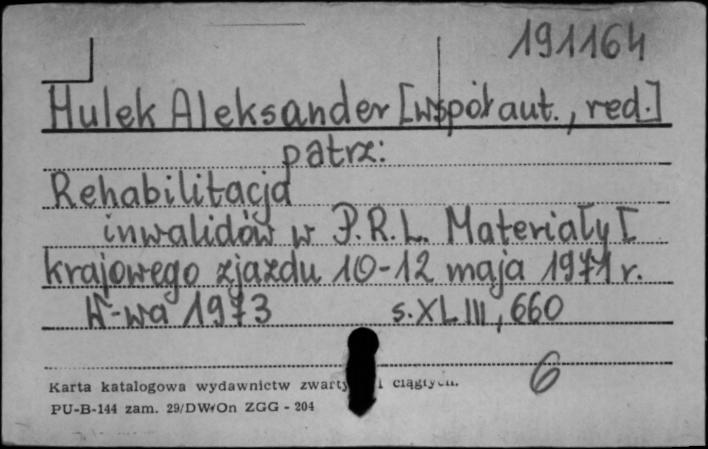 191164
Hulek Aleksander [współaut., red.]
patrz:
Rehabilitacja
inwalidów w P.R.L. Materiały I
krajowego zjazdu 10-12 maja 1971 r.
W-wa 1973 s. XLIII, 660
6
Karta katalogowa wydawnictw zwartych i ciągłych.
PU-B-144 zam. 29/DW/On ZGG - 204